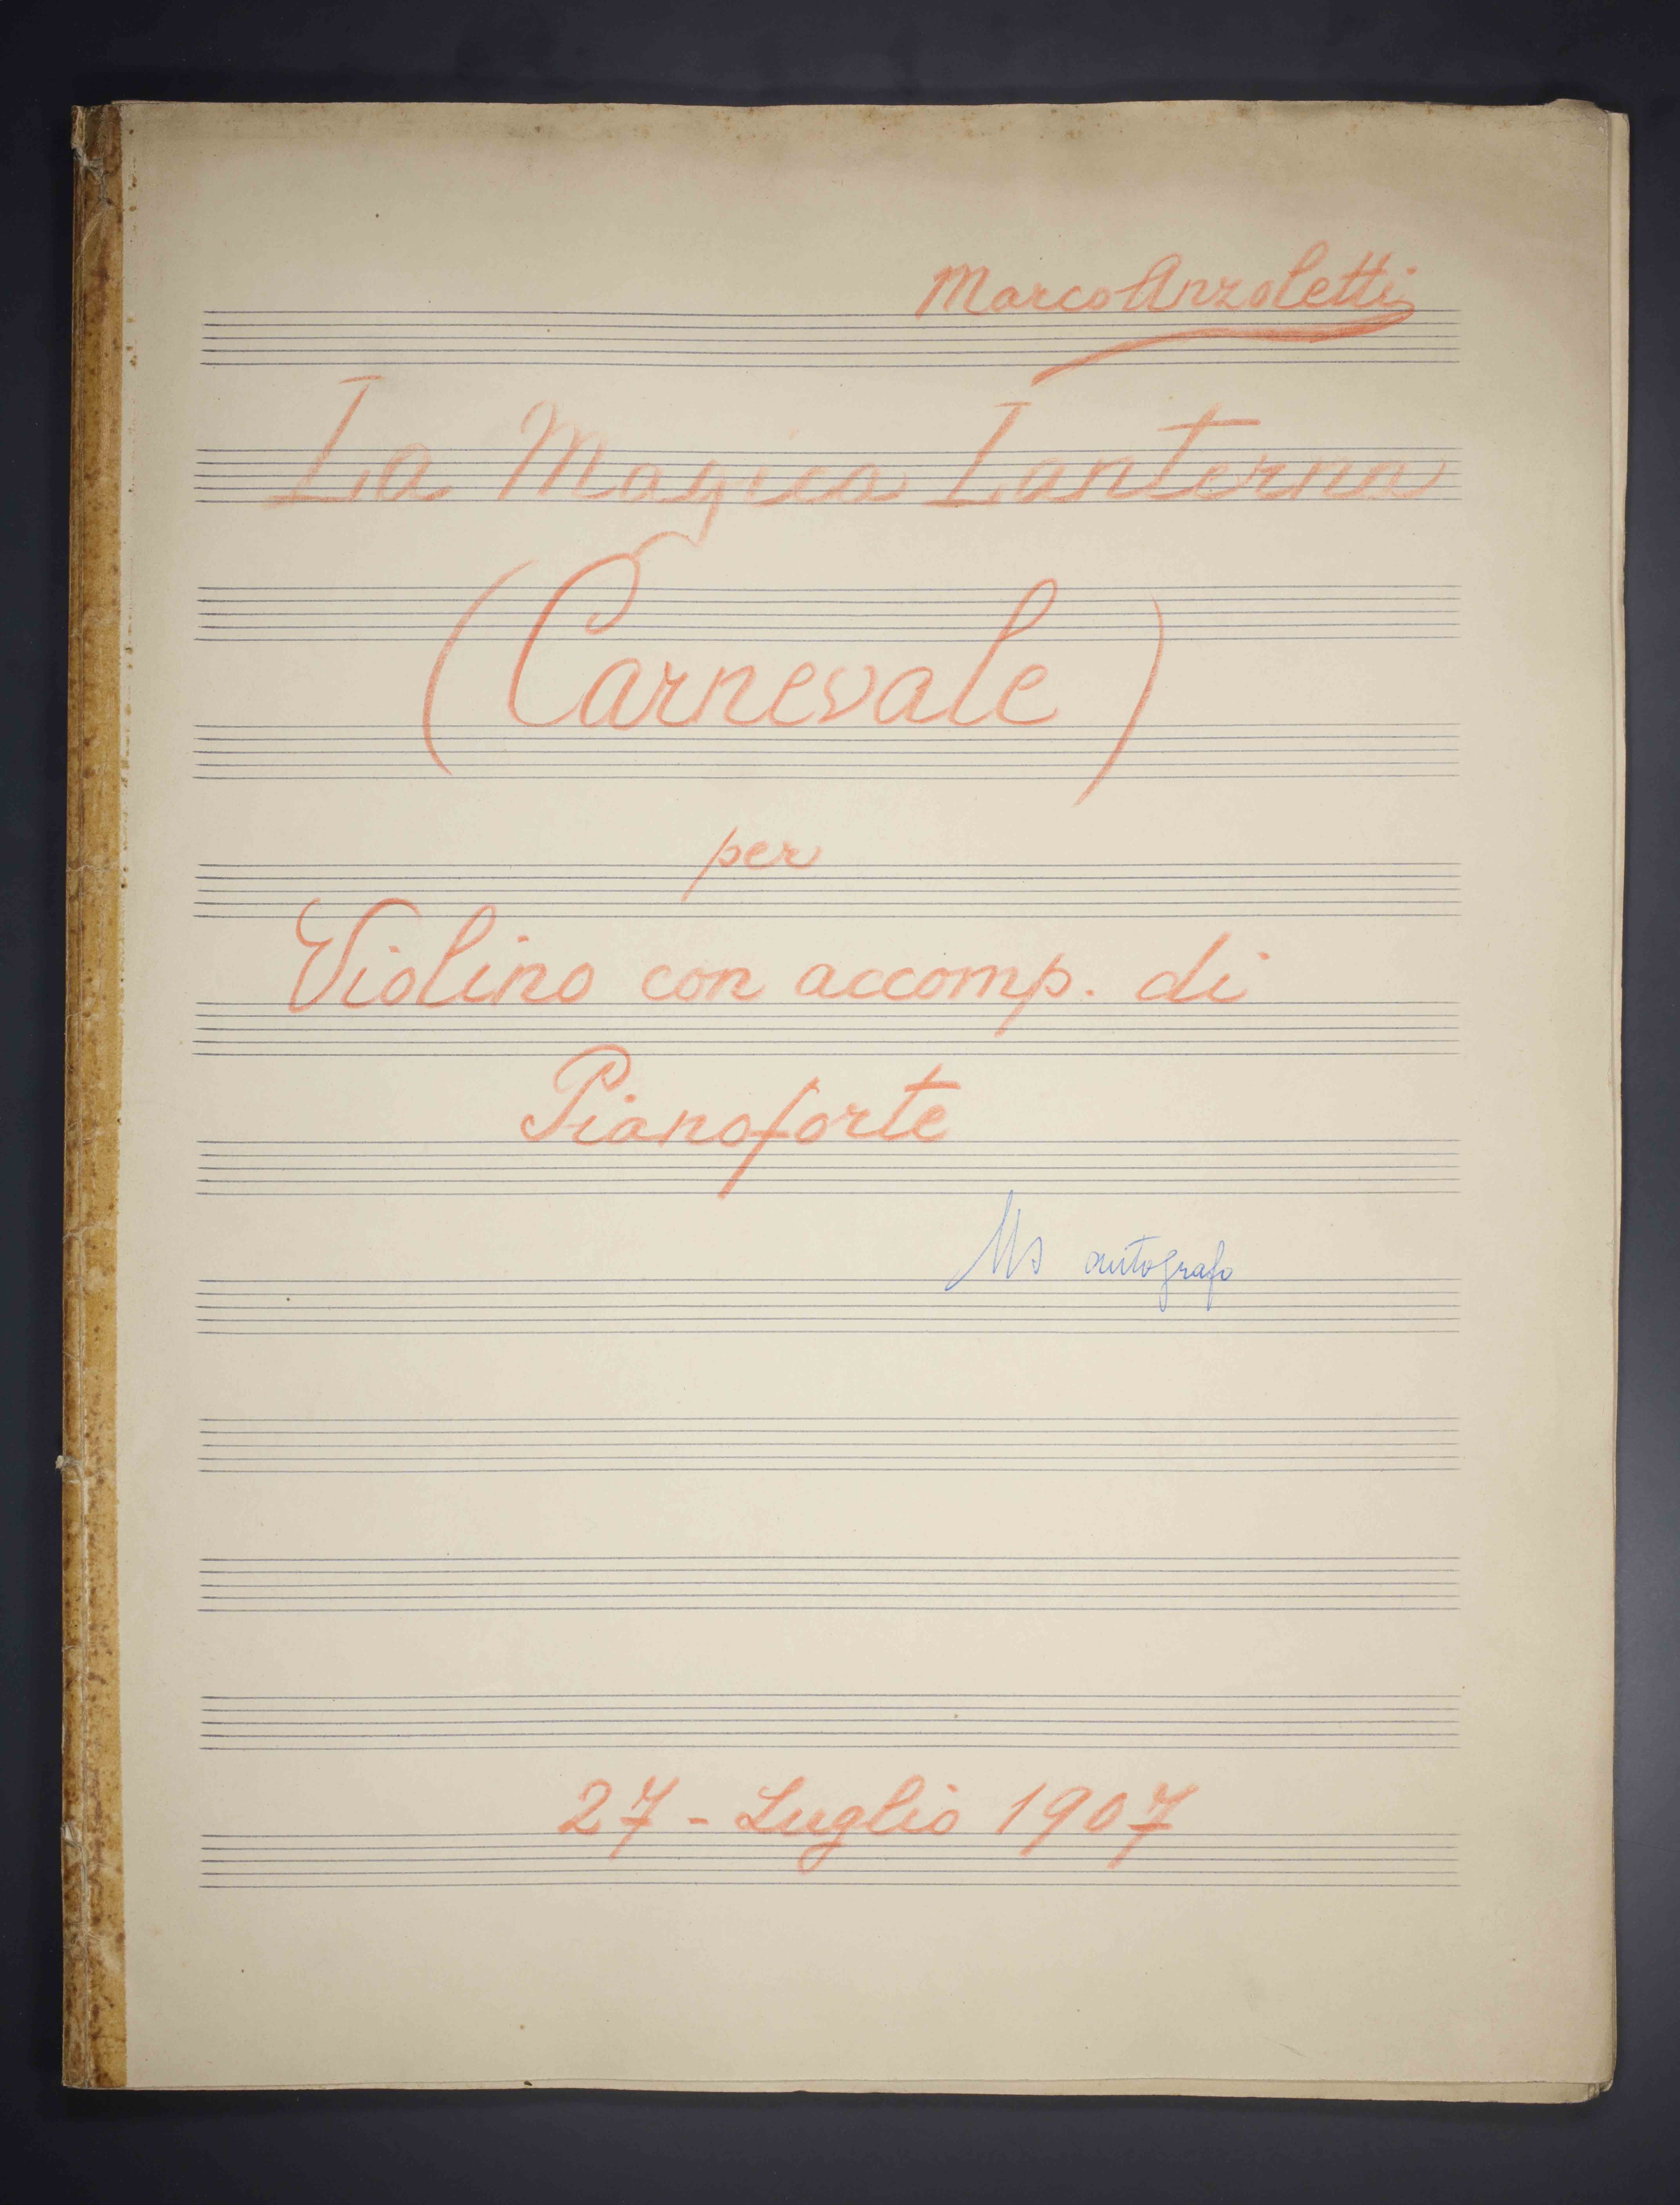 Marco Anzoletti
La Magica Lanterna
(Carnevale)
per
Violino con accomp. di
Pianoforte
Ms autografo
27 - Luglio 1907